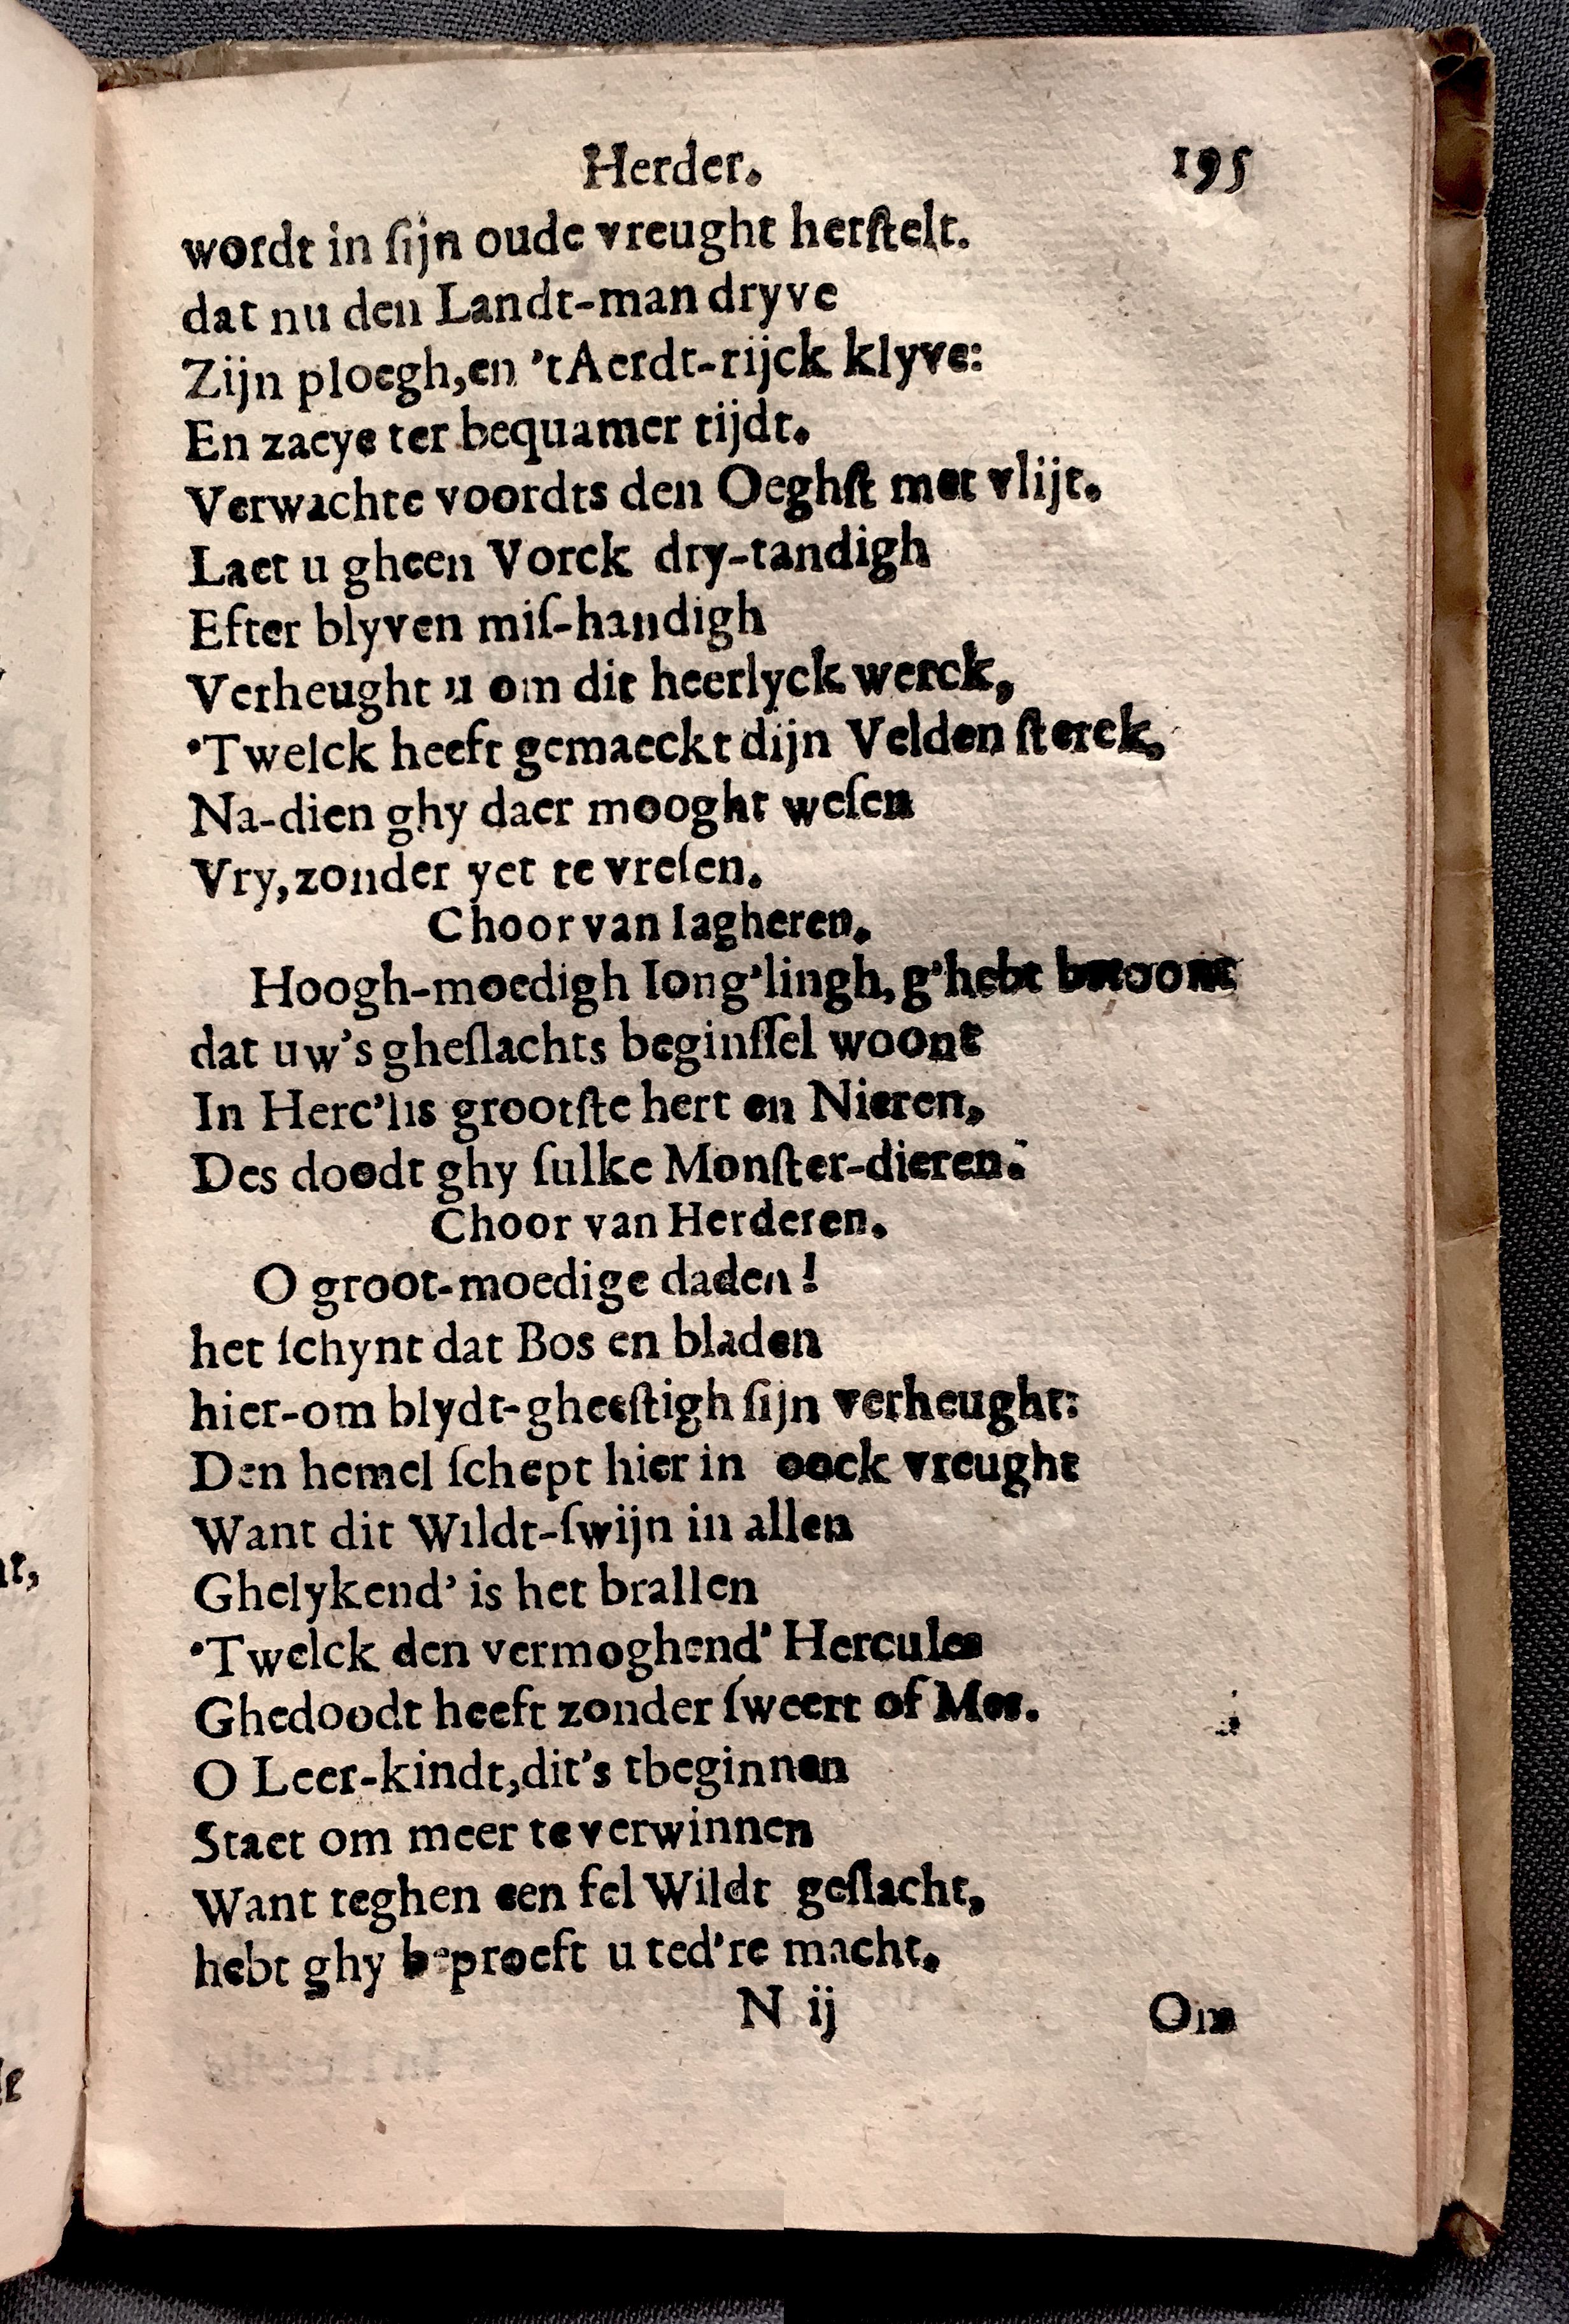 Herder. 195
wordt in ſijn oude vreught herſtelt.
dat nu den Landt-man dryve
Zijn ploegh, en 'tAerdt-rijck klyve:
En zaeye ter bequamer tijdt.
Verwachte voordts den Oeghſt met vlijt.
Laet u gheen Vorck dry-tandigh
Efter blyven miſ-handigh
Verheught u om dit heerlyck werck,
'Twelck heeft gemaeckt dijn Velden ſterck,
Na-dien ghy daer mooght weſen
Vry, zonder yet te vreſen.
Choor van Iagheren.
Hoogh-moedigh Iong'lingh, g'hebt betoont
dat uw's gheſlachts beginſſel woont
In Herc'lis grootſte hert en Nieren,
Des doodt ghy ſulke Monſter-dieren.
Choor van Herderen.
O groot-moedige daden!
het ſchynt dat Bos en bladen
hier-om blydt-gheeſtigh ſijn verheught:
Den hemel ſchept hier in oock vreught
Want dit Wildt-ſwijn in allen
Ghelykend' is het brallen
'Twelck den vermoghend' Hercules
Ghedoodt heeft zonder ſweert of Mes.
O Leer-kindt, dit's tbeginnen
Staet om meer te verwinnen
Want teghen een fel Wildt geſlacht,
hebt ghy beproeft u ted're macht.
N ij Om